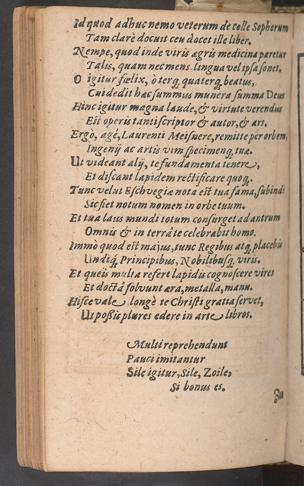 Id quod adhuc nemo veterum de colle Sophorum
Tam clarè docuit ceu docet ille liber,
Nempe, quod inde viris agris medicina paretur
Talis, quam nec mens, lingua vel ipsa sonet.
O igitur fœlix, ô terq́, quaterq́, beatus,
Cui dedit hac summus munera summa Deus
Hinc igitur magna laude, & virtute verendus
Est operis tanti scriptor & autor, & ars.
Ergò, agè, Laurenti Meisnere, remitte per orbem,
Ingenij ac artis vim specimenq́, tua.
Ut videant alij, te fundamenta tenere,
Et discant lapidem rectificare quoq́.
Tunc velut Eschvegia nota est tua fama, subindè
Sic fiet notum nomen in orbe tuum.
Et tua laus mundi totum consurget ad antrum
Omnis & in terrâ te celebrabit homo.
Immò quod est majus, tunc Regibus atq́, placebis
Undiq́, Principibus, Nobilibusq́, viris.
Et queis multa refert lapidis cognoscere vires
Et doctâ solvunt æra, metalla, manu.
Hisce vale longè te Christi gratia servet,
Ut possis plures edere in arte libros.
Multi reprehendunt
Pauci imitantur
Sile igitur, Sile, Zoile,
Si bonus es.